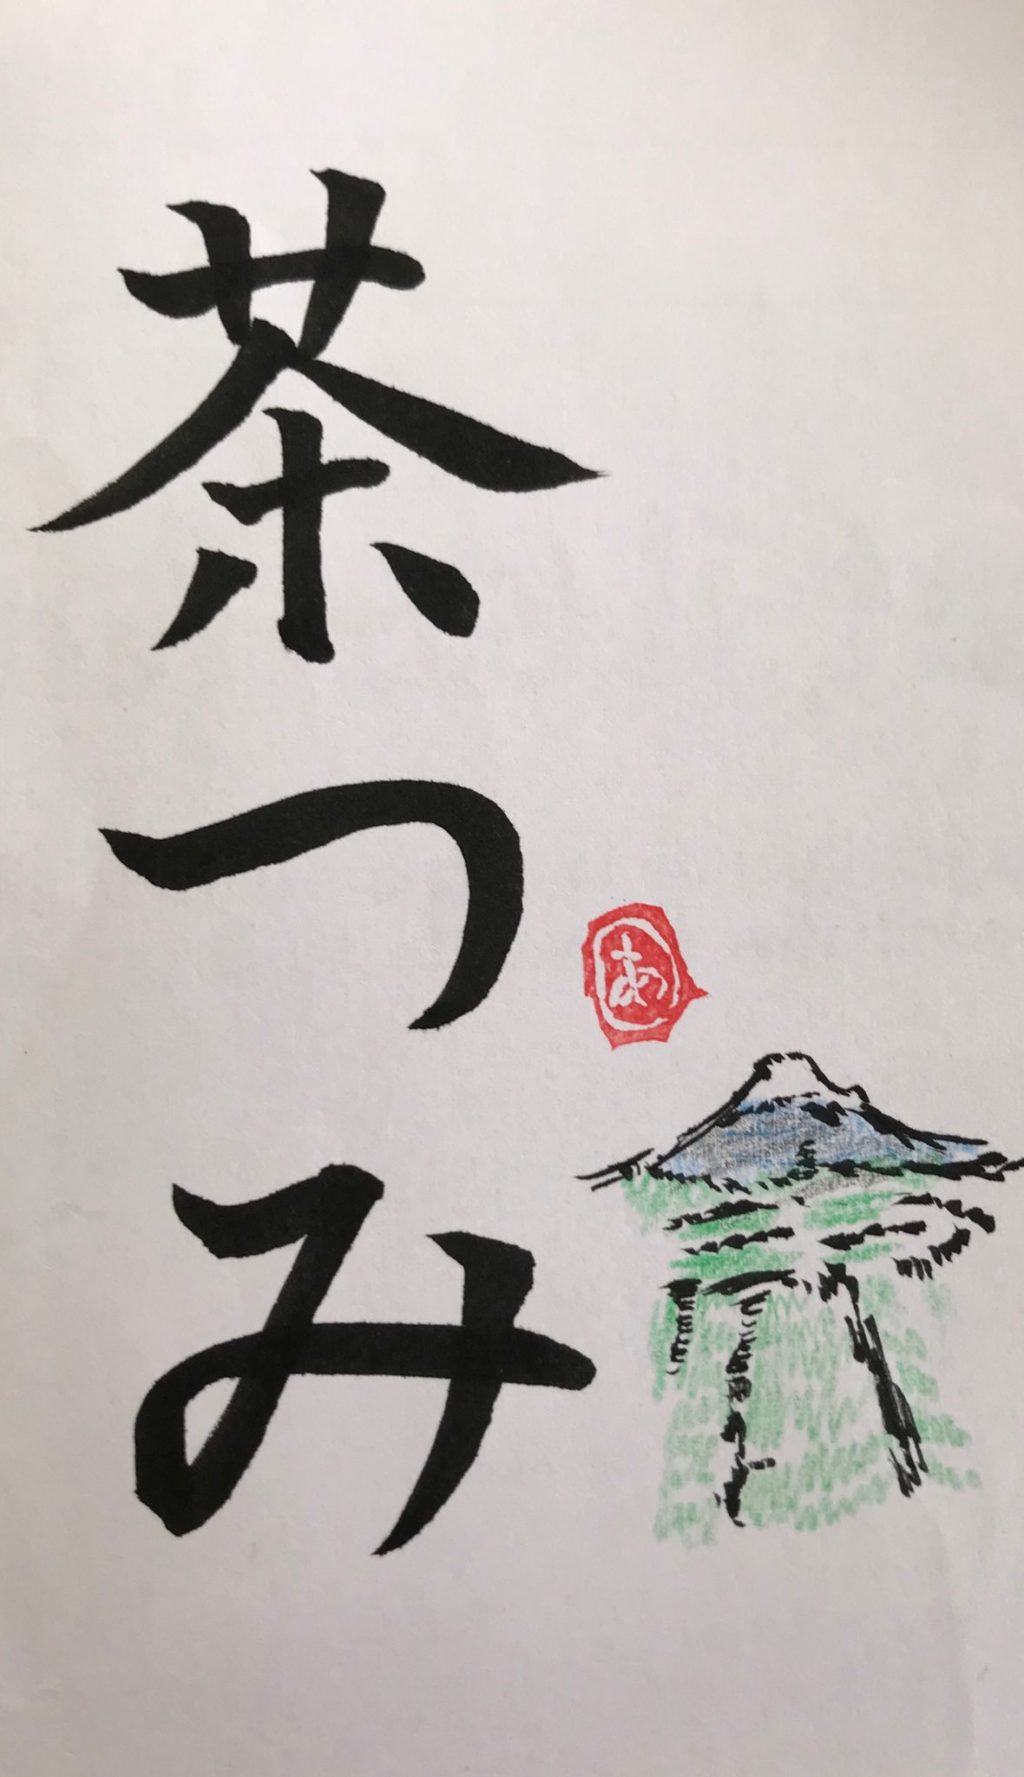 茶つみ
あ